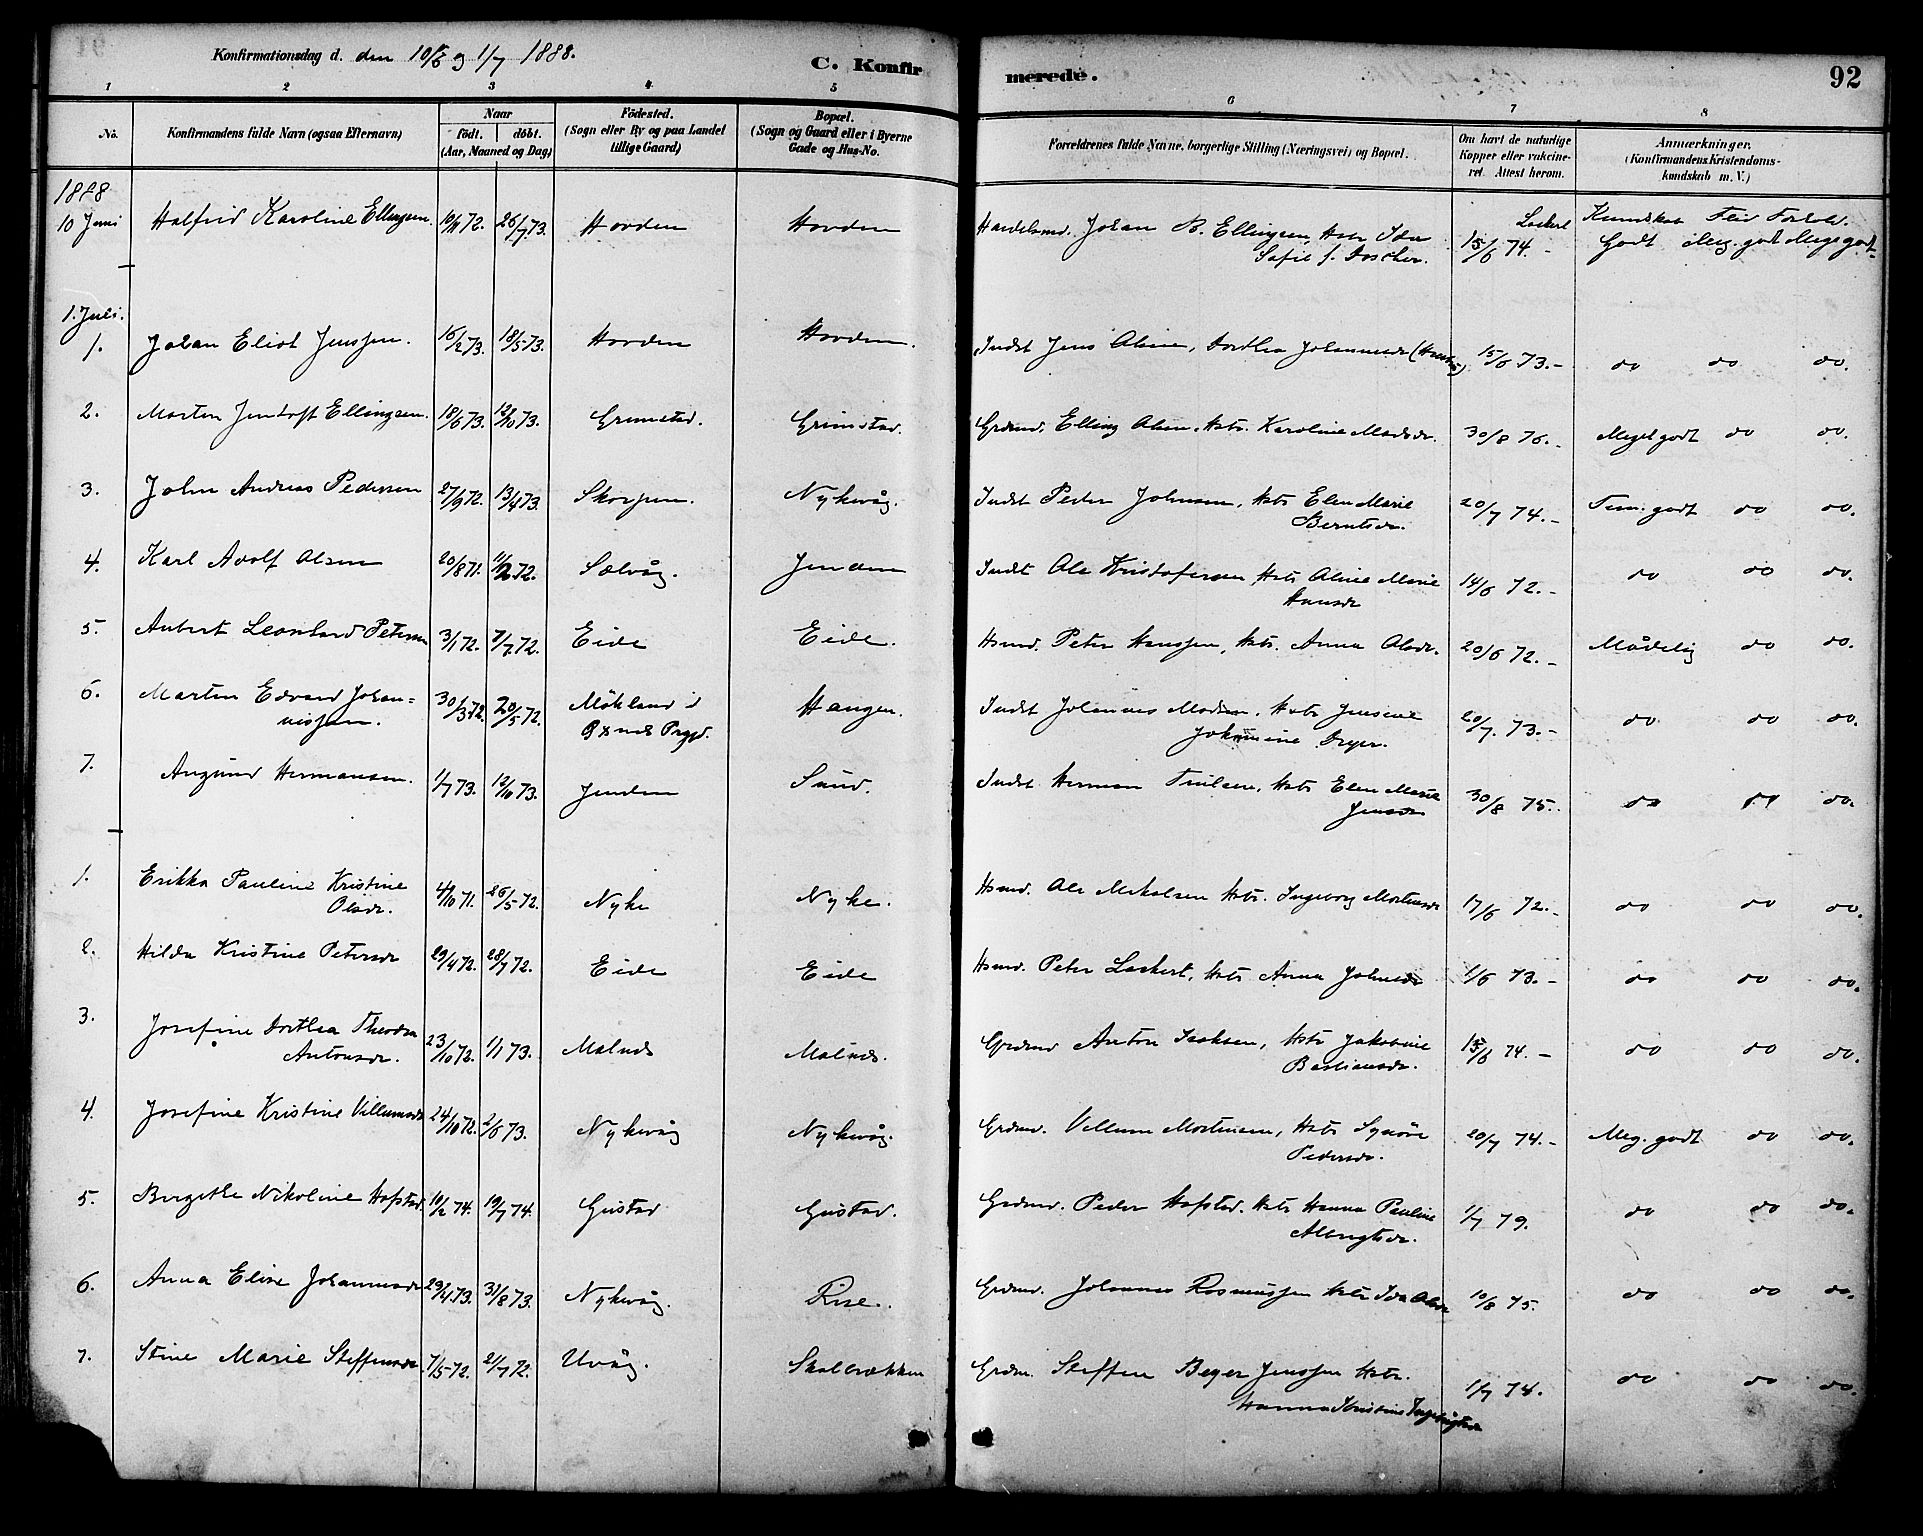 Konfirmationsdag d. den 10/6 og 1/7 1888.
C. Konfirmerede.
92
1 2 3 4 5 6 7 8
No.
Konfirmandens fulde Navn (ogsaa Efternavn)
Naar
födt. | döbt.
(Aar, Maaned og Dag)
Födested.
(Sogn eller By og paa Landet
tillige Gaard)
Bopæl.
(Sogn og Gaard eller i Byerne
Gade og Hus-No.
Forældrenes fulde Navne, borgerlige Stilling (Næringsvei) og Bopæl.
Om havt de naturlige
Kopper eller vakcine-
ret. Attest herom.
Anmærkninger.
(Konfirmandens Kristendoms-
kundskab m. V.)
1888
10 Juni Halfrid Karoline Ellingsen 10/11 72. 26/7 73. Hovden Hovden Handelsmd. Johan B. Ellingsen, Hstr Ida
Sofie f. Doscher. 15/6 74. -
Kundskab Flid Forhold.
Godt Meg. godt Meget godt
1. Juli.
1. Johan Eliot Jenssen. 16/2 73. 18/5 73. Hovden Hovden. Indst Jens Olsen, Dorthea Johannesdr 15/6 73. - do do do.
2. Morten Jentoft Ellingsen. 18/6 73. 12/10 73. Grimstad. Grimstad. Grdmd. Elling Olsen. Hstr. Karoline Madsdr. 30/8 76. - Meget godt do do.
3. John Andreas Pedersen 27/9 72. 13/4 73. Skorpen. Nykvåg. Indst Peder Johnsen, Hstr Elen Marie
Berntsdr. 20/7 74. - Tem. godt do do.
4. Karl Adolf Olsen 20/8 71. 11/2 72. Sælvåg. Jenden Indst Ole Kristofersen Hstr Oline Marie
Hansdr 14/6 72. - do do do.
5. Antert Leonhard Petersen 3/1 72. 7/7 72. Eide Eide. Hsmd. Peter Hanssen, Hstr. Anna Olsdr. 20/6 72. - Mådelig do do.
6. Martin Edvard Johan=
nissen. 30/3 72. 20/5 72. Mökland i
Öxnes Prgjd. Haugen. Indst Johannes Madsen. Hstr Jensine
Johannine Dreyer. 20/7. 73. - do do do.
7. Angund Hermansen. 1/7 73. 12/10 73. Jenden Sund. Indst Herman Trulsen, Hstr Elen Marie
Jensdr 30/8 75. do do do.
1. Erikka Pauline Kristine
Olsdr. 4/10 71. 26/5 72. Nyke Nyke. Hsmd. Ole Mikalsen Hstr. Ingeborg Mortensdr 17/6 72. - do do do.
2. Hilda Kristine Petersdr 29/4 72. 28/7 72. Eide Eide Hsmd. Peter Lockert, Hstr Anna Johnsdr 1/6 73. - do do do.
3. Josefine Dorthea Theodora
Antonsdr. 23/10 72. 1/1 73. Malnes Malnes. Grdmd Anton Isaksen, Hstr Jakobine
Bastiansdr. 15/6 74. - do do do.
4. Josefine Kristine Villumsdr 24/10 72. 2/6 73. Nykvåg Nykvåg. Grdmd. Villum Mortensen, Hstr Synöve
Pedersdr. 20/7 74. - Meg. godt do do.
5. Bergethe Nikoline Hofstad. 10/2 74. 19/7 74. Gustad Gustad. Grdmd. Peder Hofstad. Hstr Hanna Pauline
Albrigtsdr. 1/7 79. do do do.
6. Anna Elise Johannesdr 29/4 73. 31/8 73. Nykvåg. Rise. Grdmd. Johannes Rasmussen Hstr Ida Olsdr 10/8 75. do do do.
7. Stine Marie Steffensdr 7/5 72. 21/7 72. Uvåg. Skalbrækken Grdm. Steffen Beyer Jenssen Hstr.
Hanna Kristine Ingebrigtsdr 1/7 74. do do do.